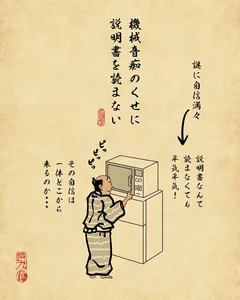 機械音痴のくせに
説明書を読まない
謎に自信満々
説明書なんて
読まなくても
平気平気！
ピッ
ピッ
ピッ
その自信は
一体どこから
来るのか・・・